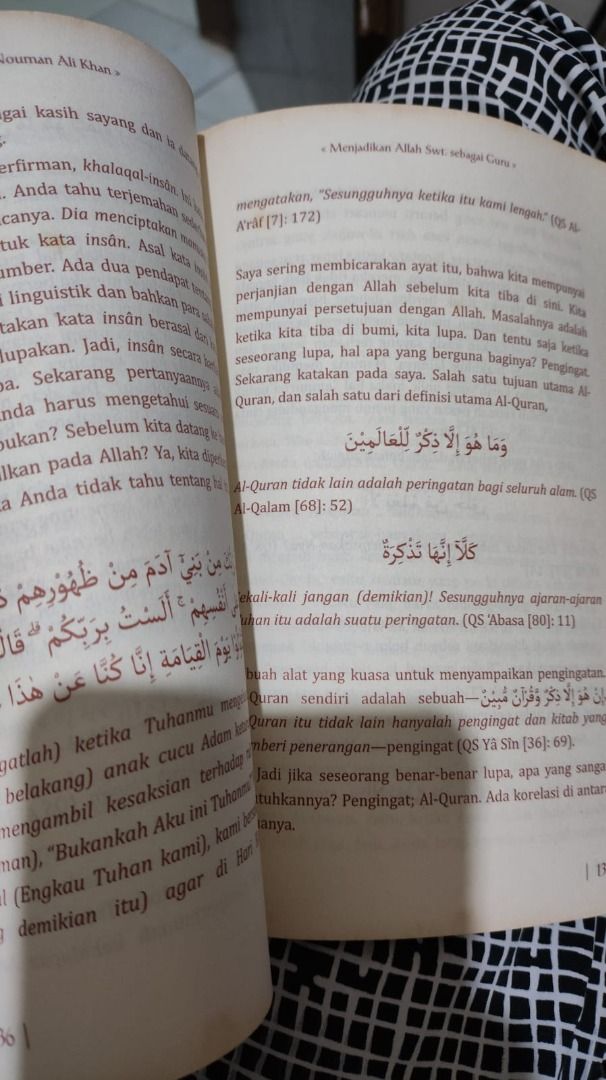 Nouman Ali Khan »
kasih sayang dan ia
khalaqal-insân.
Anda tahu terjemahan
Dia menciptakan
kata insân. Asal kata
Ada dua pendapat
linguistik dan bahkan para
kata insân berasal dari
Jadi, insân secara
Sekarang pertanyaannya
harus mengetahui
bukan? Sebelum kita datang ke
pada Allah? Ya, kita
Anda tidak tahu tentang hal
مِنْ بَنِيْٓ اٰدَمَ مِنْ ظُهُوْرِهِمْ
اَنْفُسِهِمْ ۚ اَلَسْتُ بِرَبِّكُمْ ۗ
يَوْمَ الْقِيَامَةِ اِنَّا كُنَّا عَنْ هٰذَا
ketika Tuhanmu
belakang) anak cucu Adam
mengambil kesaksian terhadap
"Bukankah Aku ini Tuhanmu
(Engkau Tuhan kami), kami
demikian itu) agar di Hari
« Menjadikan Allah Swt. sebagai Guru »
mengatakan, "Sesungguhnya ketika itu kami lengah." (QS Al-
A'râf [7]: 172)
Saya sering membicarakan ayat itu, bahwa kita mempunyai
perjanjian dengan Allah sebelum kita tiba di sini. Kita
mempunyai persetujuan dengan Allah. Masalahnya adalah
ketika kita tiba di bumi, kita lupa. Dan tentu saja ketika
seseorang lupa, hal apa yang berguna baginya? Pengingat.
Sekarang katakan pada saya. Salah satu tujuan utama Al-
Quran, dan salah satu dari definisi utama Al-Quran,
وَمَا هُوَ اِلَّا ذِكْرٌ لِّلْعَالَمِيْنَ
Al-Quran tidak lain adalah peringatan bagi seluruh alam. (QS
Al-Qalam [68]: 52)
كَلَّآ اِنَّهَا تَذْكِرَةٌ
jangan (demikian)! Sesungguhnya ajaran-ajaran
itu adalah suatu peringatan. (QS 'Abasa [80]: 11)
alat yang kuasa untuk menyampaikan pengingatan.
Quran sendiri adalah sebuah—اِنْ هُوَ اِلَّا ذِكْرٌ وَّقُرْاٰنٌ مُّبِيْنٌ
Quran itu tidak lain hanyalah pengingat dan kitab yang
penerangan—pengingat (QS Yâ Sîn [36]: 69).
Jadi jika seseorang benar-benar lupa, apa yang
Pengingat; Al-Quran. Ada korelasi di